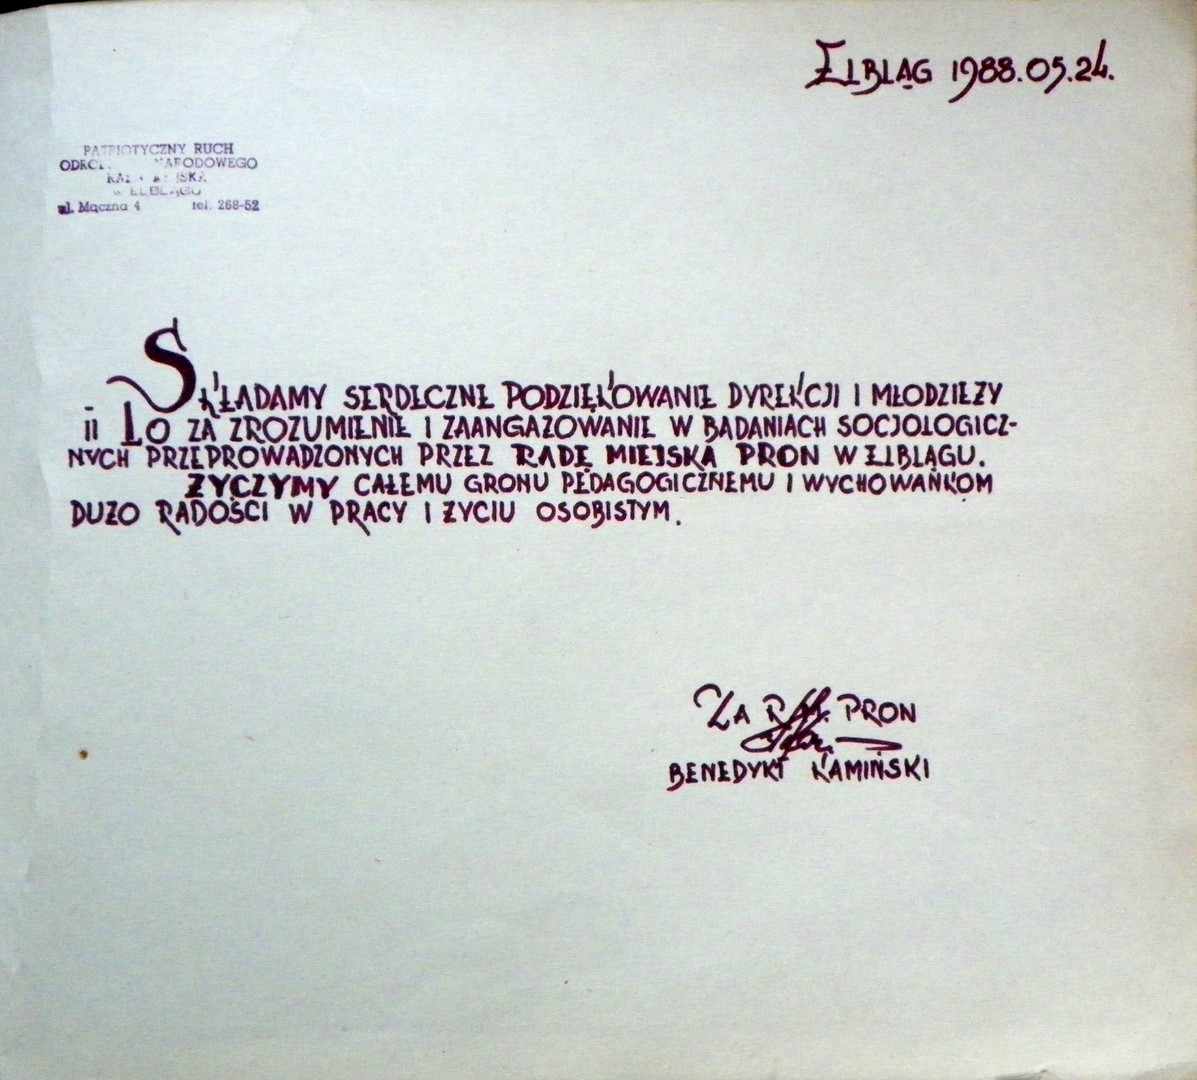 Elbląg 1988.05.24.
PATRIOTYCZNY RUCH
NARODOWEGO
W ELBLĄGU
ul. Mączna 4 tel. 268-52
SKŁADAMY SERDECZNE PODZIĘKOWANIE DYREKCJI I MŁODZIEŻY
II LO ZA ZROZUMIENIE I ZAANGAŻOWANIE W BADANIACH SOCJOLOGICZ-
NYCH PRZEPROWADZONYCH PRZEZ RADĘ MIEJSKĄ PRON W ELBLĄGU.
ŻYCZYMY CAŁEMU GRONU PEDAGOGICZNEMU I WYCHOWANKOM
DUŻO RADOŚCI W PRACY I ŻYCIU OSOBISTYM.
ZA R.M. PRON
BENEDYKT KAMIŃSKI